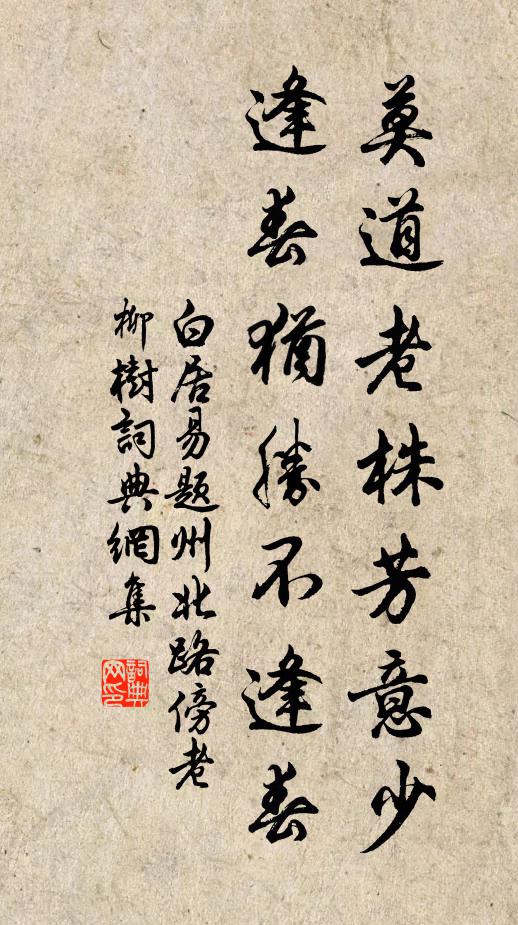 莫道老株芳意少
逢春猶勝不逢春
白居易題州北路傍老
柳樹詞典網集
詞典
网印